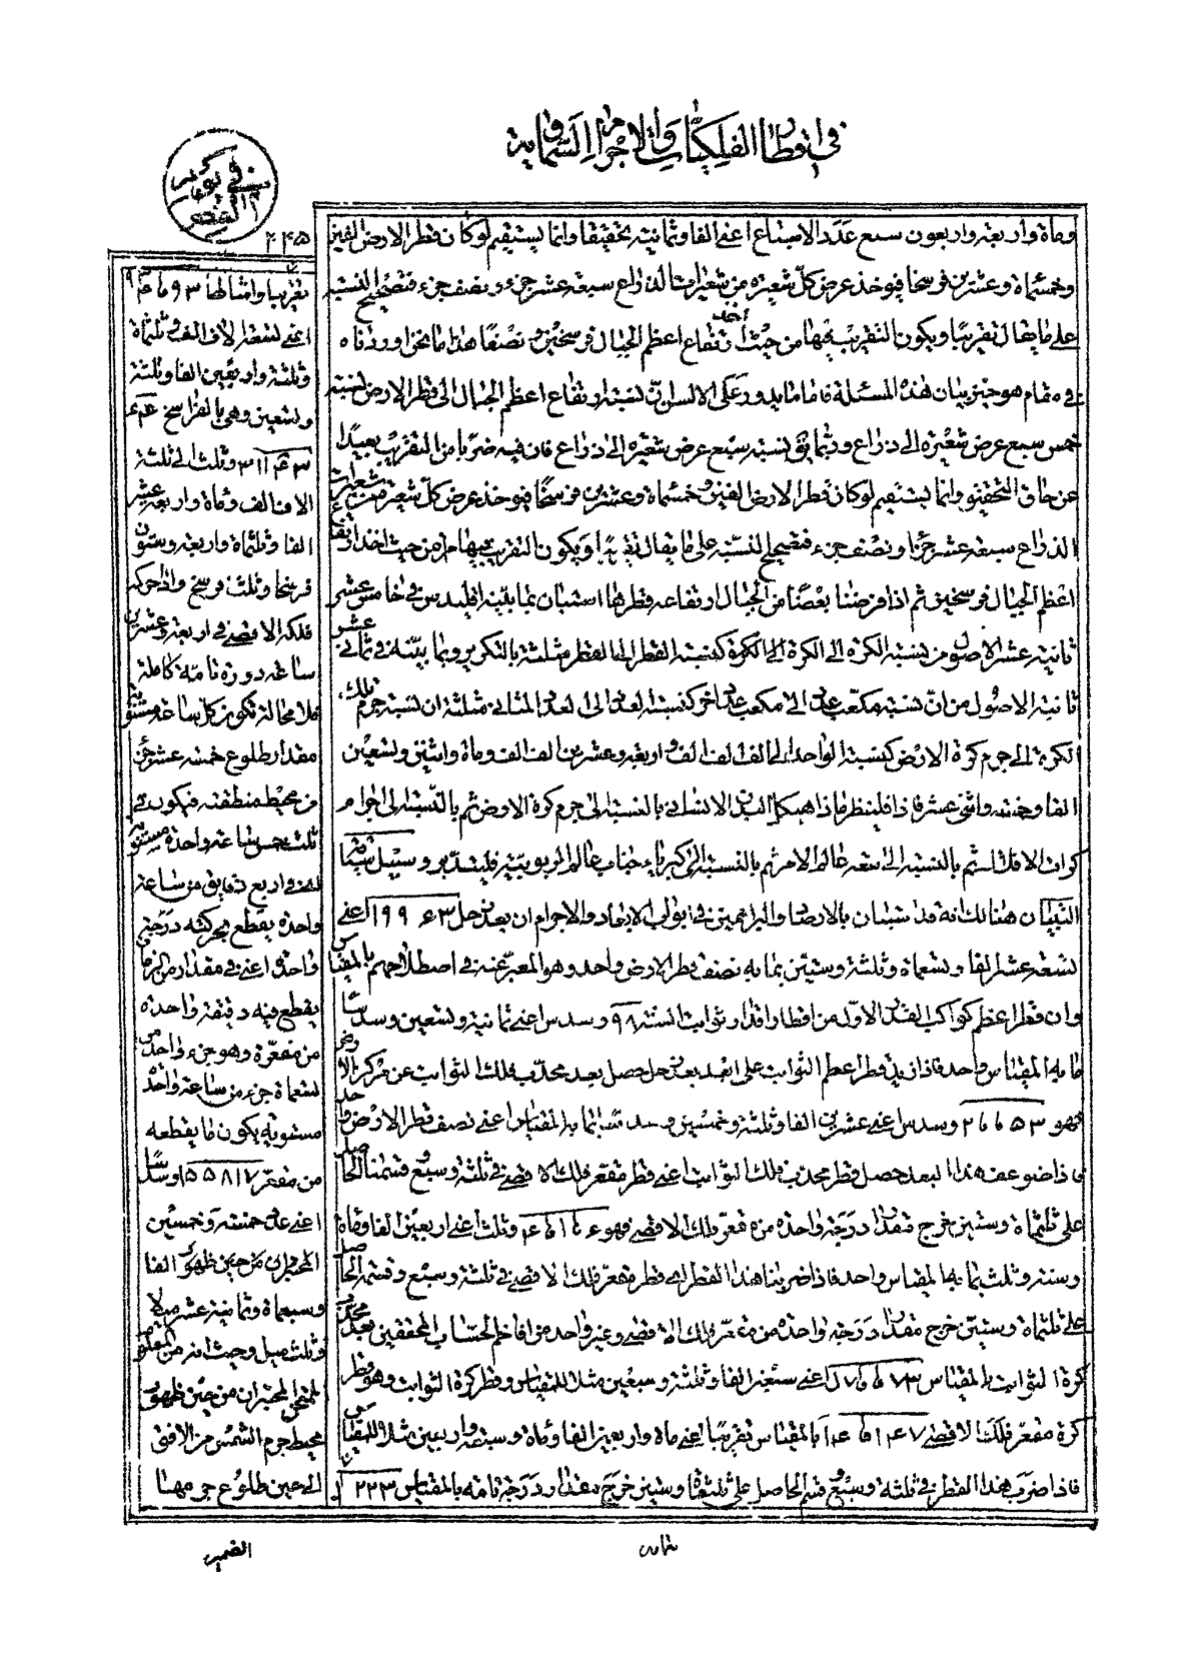 في اقطار الفلكيات والاجرام السماوية
في يوم
القدر
٢٤٥
وماة واربعة واربعون سبع عدد الاصباع اعني الفا وثمانية تحقيقا وانما يستقيم لو كان قطر الارض الفين
وخمسماة وعشرين فرسخا فيوخذ عرض كل شعيرة من شعيرات الذراع سبعة عشر جزء ونصف جزء فتصحيح النسبة
على ما يقال تقريبا ويكون التقريب فيها من حيث اخذ ارتفاع اعظم الجبال فرسخين ونصفا هذا ما نحن اوردناه
في مقام هو حيز بيان هذه المسئلة فاما ما يدور على الالسن ان نسبة ارتفاع اعظم الجبال الى قطر الارض نسبة
خمس سبع عرض شعيرة الى ذراع وربما يق نسبة سبع عرض شعيرة الى ذراع فان فيه ضربا من التقريب بعيدا
عن حاق التحقيق وانما يستقيم لو كان قطر الارض الفين وخمسماة وعشرين فرسخا فيوخذ عرض كل شعيرة من شعيرات
الذراع سبعة عشر جزءا ونصف جزء فتصحيح النسبة على ما يقال تقريبا ويكون التقريب فيها من حيث اخذ ارتفاع
اعظم الجبال فرسخين ثم اذا فرضنا بعضا من الجبال ارتفاعه قطرها استبان بما بينه اقليدس في خامس عشر
ثانية عشر الاصول من نسبة الكرة الى الكرة كنسبة القطر الى القطر مثلثة بالتكرير وبما بينه في ثاني عشر
ثانية الاصول من ان نسبة مكعب عدد الى مكعب عدد اخر كنسبة العدد الى العدد المثاني مثلثة ان نسبة جرم تلك
الكرة الى جرم كرة الارض كنسبة الواحد الى الف الف الف واربعة وعشرين الف الف وماة واثنين وتسعين
الفا وخمسة واثني عشر فاذا فلينظر ماذا هيكل البدن الانساني بالنسبة الى جرم كرة الارض ثم بالنسبة الى اجرام
كرات الافلاك ثم بالنسبة الى سعة عالم الامر ثم بالنسبة الى كبرياء جناب عالم الربوبية فليتدبر وسبيل سياقة
التبيان هنالك انه قد استبان بالارصاد والبراهين في ابواب الابعاد والاجرام ان بعد زحل ١٩٩٦٣ اعني
تسعة عشر الفا وتسعماة وثلثة وستين بما به نصف قطر الارض واحد وهو المعبر عنه في اصطلاحهم بالمقياس
وان قطر اعظم كواكب القدر الاول من اقطار اقدار ثوابت الستة ٩٨ وسدس اعني ثمانية وتسعين وسدسا
ما به المقياس واحد فاذا زيد قطر اعظم الثوابت على ابعد بعد زحل حصل بعد محدب فلك الثوابت عن مركز الارض
فهو ٢٠٠٥٣ وسدس اعني عشرين الفا وثلثة وخمسين وسدسا بما به المقياس اعني نصف قطر الارض واحد
فاذا ضوعف هذا البعد حصل قطر محدب فلك الثوابت اعني قطر مقعر فلك الاقصى في ثلثة وسبع وقسمنا الحاصل
على ثلثماة وستين خرج مقدار درجة واحدة من مقعر فلك الاقصى فهو ٤٠١٠٦ وثلث اعني اربعين الفا وماة
وستة وثلث بما به المقياس واحد فاذا ضربنا هذا القطر اي قطر مقعر فلك الاقصى في ثلثة وسبع وقسم الحاصل
على ثلثماة وستين خرج مقدار درجة واحدة من مقعر فلك الاقصى وغير واحد من افاخم الحساب المحققين بعد محدب
كرة الثوابت بالمقياس ٧٠٠٧٣ اعني سبعين الفا وثلثة وسبعين مثلا للمقياس وقطر كرة الثوابت وهو قطر
كرة مقعر فلك الاقصى ١٤٠١٤٧ بالمقياس تقريبا اعني ماة واربعين الفا وماة وسبعة واربعين مثلا للمقياس
فاذا ضرب هذا القطر في ثلثة وسبع وقسم الحاصل على ثلثماة وستين خرج مقدار درجة تامة بالمقياس ١٢٢٣
تقريبا وامثالها
اعني تسعة الاف الف وثلثماة
وثلثة واربعين الفا وثلثة
وتسعين وهي بالفراسخ
٣١١٤٣٠٣ وثلث الى ثلثة
الاف الف وماة واربعة عشر
الفا وثلثماة واربعة وستون
فرسخا وثلث فرسخ واذ حركة
فلك الاقصى في اربعة وعشرين
ساعة دورة تامة كاملة
فلا محالة تكون كل ساعة مستوية
مقدار طلوع خمسة عشر جزء
من محيط منطقته فيكون في
ثلث خمس ساعة واحدة مستوية
اعني اربع دقايق من ساعة
واحدة يقطع بحركته درجة
واحدة اعني في مقدار من الزمان
يقطع فيه دقيقة واحدة
من مقعره وهو جزء واحد من
تسعماة جزء من ساعة واحدة
مستوية يكون ما يقطعه
من مقعره ٥٥٨١٧ اوسدسا
اعني عدد خمسة وخمسين
الفا
وسبعماة وثمانية عشر ميلا
وثلث ميل وحيث انه من المعلوم
لمتحني المحيران من حين ظهور
محيط جرم الشمس من الافق
الى حين طلوع جرمها
شماىں
الضمير